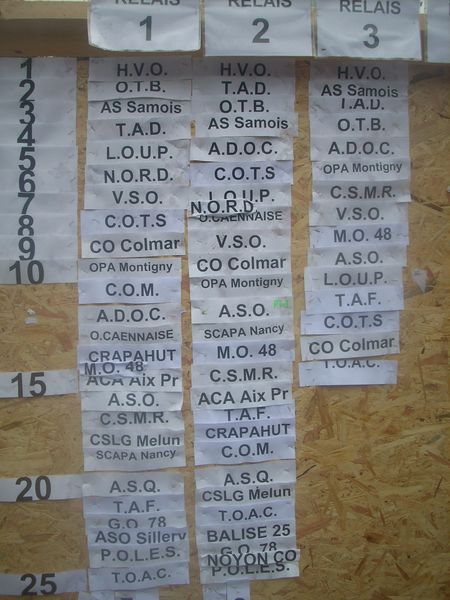 RELAIS RELAIS RELAIS
1 2 3
1 H.V.O. H.V.O. H.V.O.
2 O.T.B. T.A.D. AS Samois
3 AS Samois O.T.B. T.A.D.
4 T.A.D. AS Samois O.T.B.
5 L.O.U.P. A.D.O.C. A.D.O.C.
6 N.O.R.D. C.O.T.S OPA Montigny
7 V.S.O. L.O.U.P. C.S.M.R.
8 C.O.T.S N.O.R.D. V.S.O.
O.CAENNAISE
9 CO Colmar V.S.O. M.O. 48
10 OPA Montigny CO Colmar A.S.O.
C.O.M. OPA Montigny L.O.U.P.
A.D.O.C. A.S.O. T.A.F.
O.CAENNAISE SCAPA Nancy C.O.T.S
CRAPAHUT M.O. 48 CO Colmar
M.O. 48
15 ACA Aix Pr C.S.M.R. T.O.A.C.
A.S.O. ACA Aix Pr
C.S.M.R. T.A.F.
CSLG Melun CRAPAHUT
SCAPA Nancy C.O.M.
20 A.S.Q. A.S.Q.
T.A.F. CSLG Melun
G.O. 78 T.O.A.C.
ASO Sillery BALISE 25
G.O. 78
P.O.L.E.S. NOYON CO
25 T.O.A.C. P.O.L.E.S.